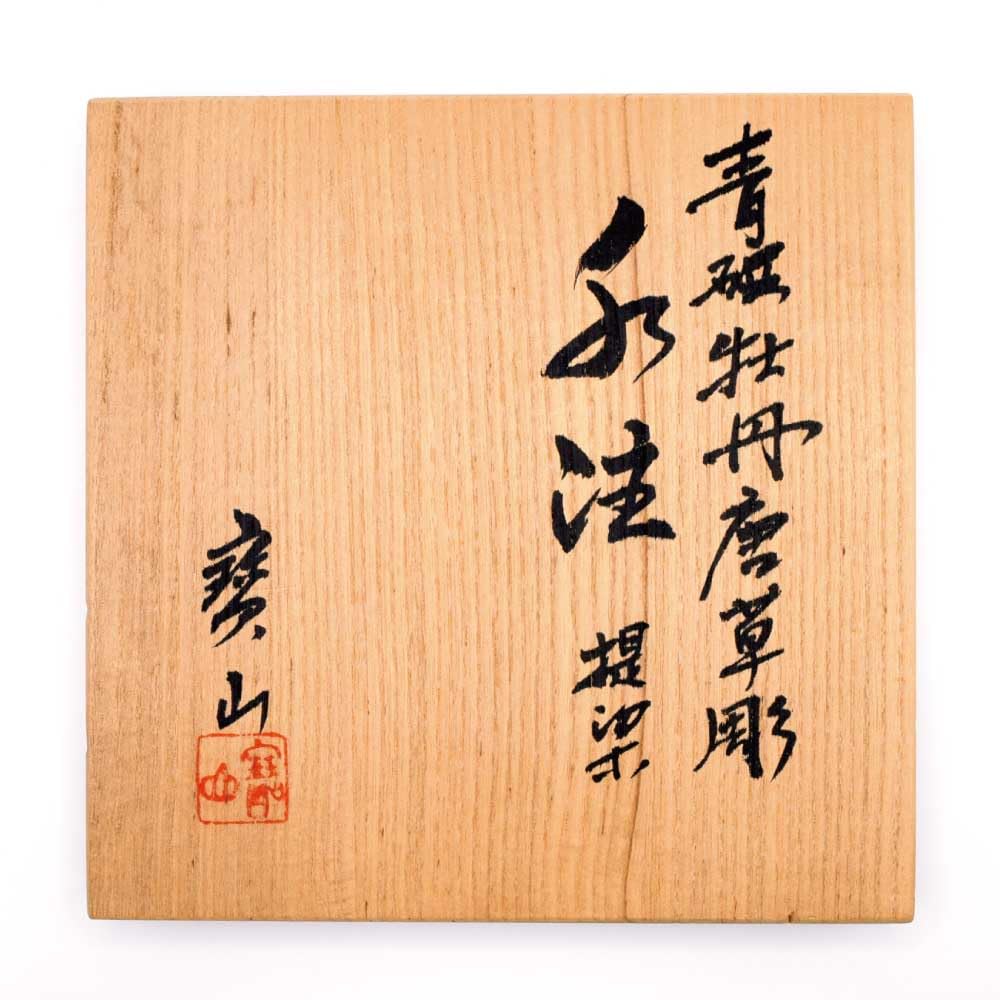 青磁牡丹唐草彫
水注 提梁
寳山
寳山